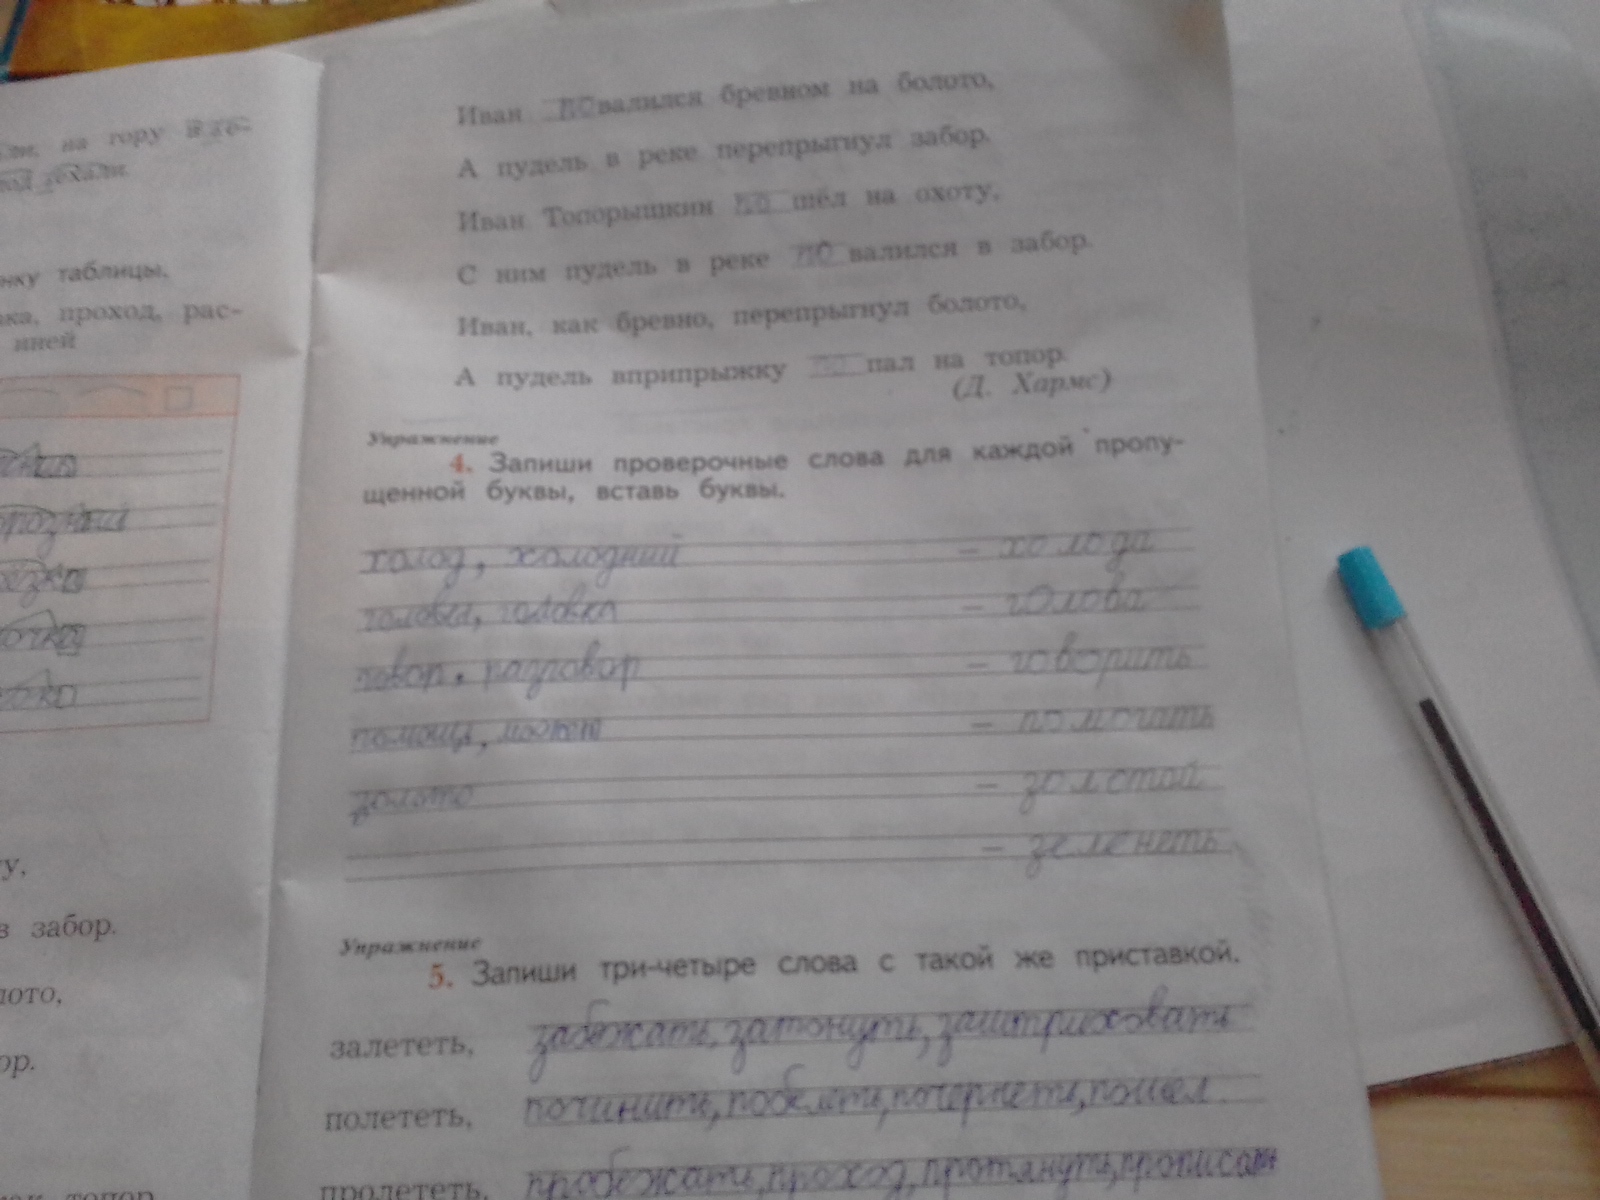 на гору
нку таблицы.
ка, проход, рас-
иней
у,
в забор.
лото,
ор.
топор
Иван повалился бревном на болото,
А пудель в реке перепрыгнул забор.
Иван Топорышкин по шёл на охоту,
С ним пудель в реке по валился в забор.
Иван, как бревно, перепрыгнул болото,
А пудель вприпрыжку пал на топор.
(Д. Хармс)
Упражнение
4. Запиши проверочные слова для каждой пропу-
щенной буквы, вставь буквы.
холод, холодний – холода
головка – голова
говор, разговор – говорить
помощь, может – помогать
золото – золотой
– зеленеть
Упражнение
5. Запиши три-четыре слова с такой же приставкой.
залететь, забежать, затонуть, заштриховать
полететь, починить, побелеть, почернеть, пошёл.
пролететь, пробежать, проход, протянуть, прописать